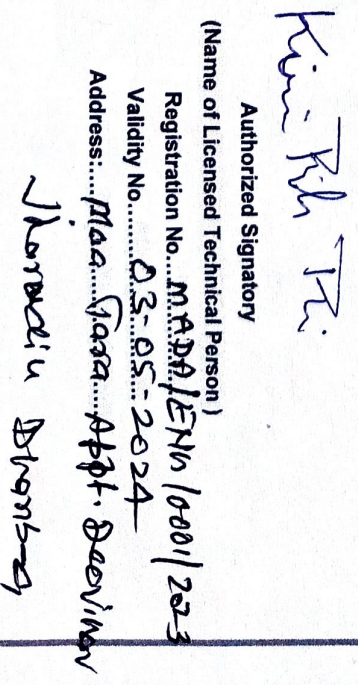 Authorized Signatory
(Name of Licensed Technical Person)
Registration No....MADA/ENG/0001/2023
Validity No.......03-05-2024
Address:....Maa....Tara....Appt.
Dhanbad